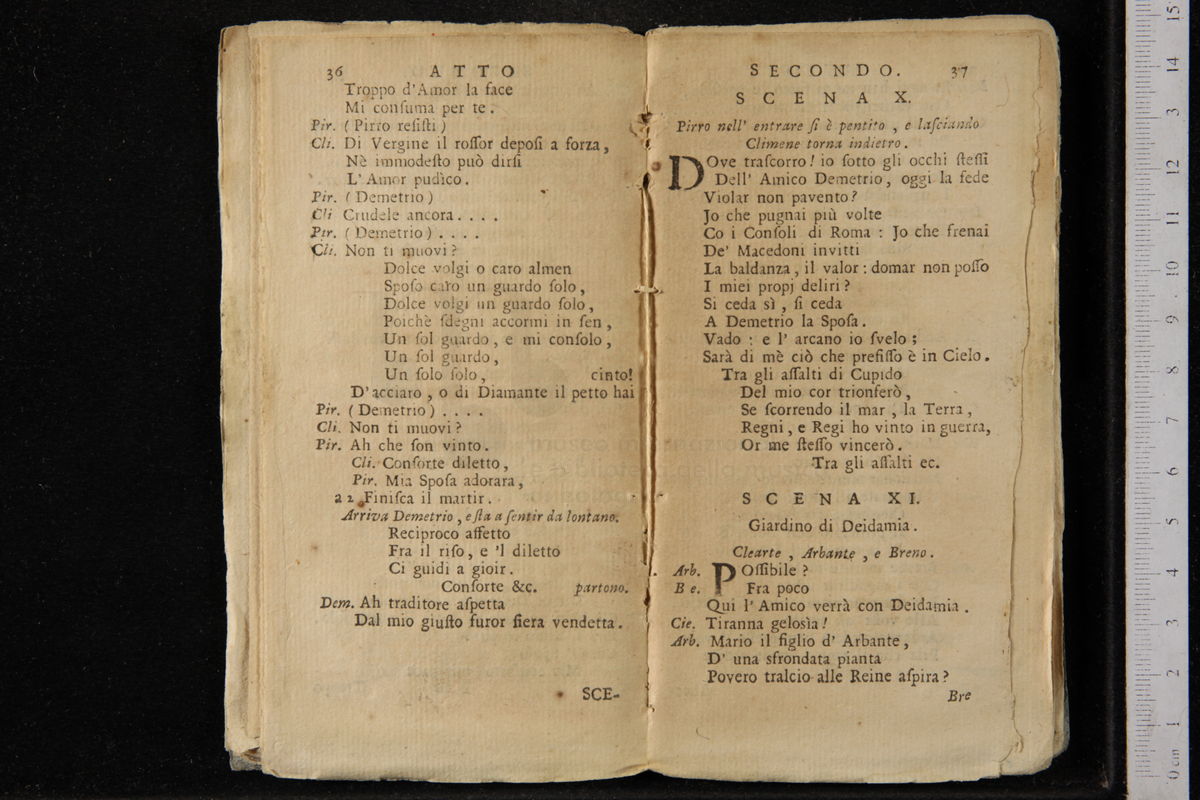 36 ATTO
Troppo d'Amor la face
Mi conſuma per te.
Pir. (Pirro reſiſti)
Cli. Di Vergine il roſſor depoſi a forza,
Nè immodeſto può dirſi
L'Amor pudìco.
Pir. (Demetrio)
Cli Crudele ancora....
Pir. (Demetrio)....
Cli. Non ti muovi?
Dolce volgi o caro almen
Spoſo caro un guardo ſolo,
Dolce volgi un guardo ſolo,
Poichè ſdegni accormi in ſen,
Un ſol guardo, e mi conſolo,
Un ſol guardo,
Un ſolo ſolo, cinto!
D'acciaro, o di Diamante il petto hai
Pir. (Demetrio)....
Cli. Non ti muovi?
Pir. Ah che ſon vinto.
Cli. Conſorte diletto,
Pir. Mia Spoſa adorara,
a 2 Finiſca il martir.
Arriva Demetrio, e ſta a ſentir da lontano.
Reciproco affetto
Fra il riſo, e 'l diletto
Ci guidi a gioir.
Conſorte &c. partono.
Dem. Ah traditore aſpetta
Dal mio giuſto furor fiera vendetta.
SCE-
SECONDO. 37
SCENA X.
Pirro nell' entrare ſi è pentito, e laſciando
Climene torna indietro.
DOve traſcorro! io ſotto gli occhi ſteſſi
Dell' Amico Demetrio, oggi la fede
Violar non pavento?
Jo che pugnai più volte
Co i Conſoli di Roma: Jo che frenai
De' Macedoni invitti
La baldanza, il valor: domar non poſſo
I miei propj deliri?
Si ceda sì, ſi ceda
A Demetrio la Spoſa.
Vado: e l' arcano io ſvelo;
Sarà di mè ciò che prefiſſo è in Cielo.
Tra gli aſſalti di Cupido
Del mio cor trionferò,
Se ſcorrendo il mar, la Terra,
Regni, e Regi ho vinto in guerra,
Or me ſteſſo vincerò.
Tra gli aſſalti ec.
SCENA XI.
Giardino di Deidamia.
Clearte, Arbante, e Breno.
Arb. POſſibile?
B e. Fra poco
Qui l'Amico verrà con Deidamia.
Cie. Tiranna gelosìa!
Arb. Mario il figlio d' Arbante,
D' una sfrondata pianta
Povero tralcio alle Reine aſpira?
Bre
0 cm 1 2 3 4 5 6 7 8 9 10 11 12 13 14 15